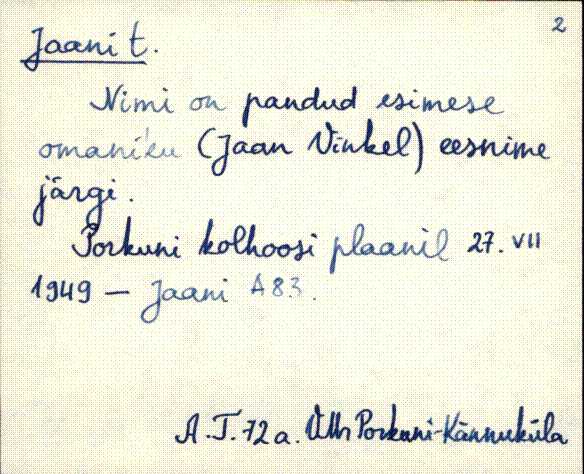 2
Jaani t.
Nimi on pandud esimese
omaniku (Jaan Vinkel) eesnime
järgi.
Porkuni kolhoosi plaanil 27. VII
1949 – Jaani A 83.
A.T. 72 a. VMr Porkuni-Kännuküla